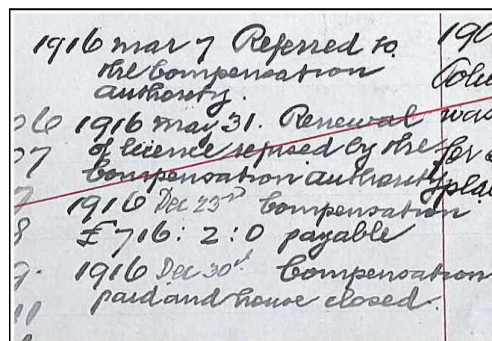 1916 mar 7 Referred to
the Compensation
authority.
1916 may 31. Renewal
of licence refused by the
Compensation authority
1916 Dec 23rd Compensation
£716: 2: 0 payable
1916 Dec 30th Compensation
paid and house closed.